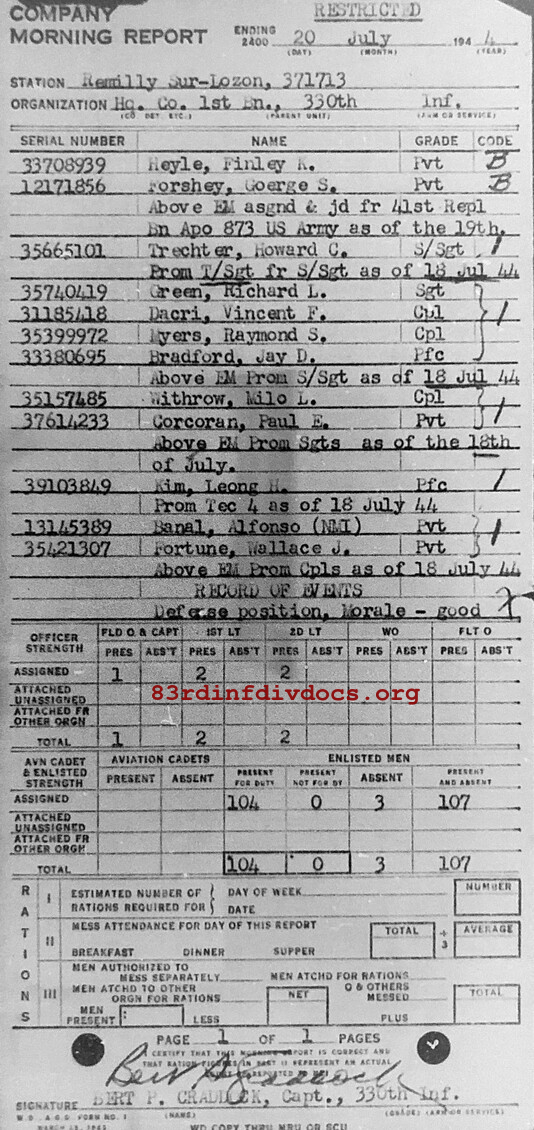 RESTRICTED
COMPANY
MORNING REPORT
ENDING 2400 20 July 1944
(DAY) (MONTH) (YEAR)
STATION Remilly Sur-Lozon, 371713
ORGANIZATION Hq. Co. 1st Bn., 330th Inf.
(CO. DET. ETC.) (PARENT UNIT) (ARM OR SERVICE)
SERIAL NUMBER NAME GRADE CODE
33708939 Heyle, Finley K. Pvt B
12171856 Forshey, Goerge S. Pvt B
Above EM asgnd & jd fr 41st Repl
Bn Apo 873 US Army as of the 19th.
35665101 Trechter, Howard C. S/Sgt 1
Prom T/Sgt fr S/Sgt as of 18 Jul 44
35740419 Green, Richard L. Sgt
31185418 Dacri, Vincent F. Cpl 1
35399972 Myers, Raymond S. Cpl
33380695 Bradford, Jay D. Pfc
Above EM Prom S/Sgt as of 18 Jul 44
35157485 Withrow, Milo L. Cpl
37614233 Corcoran, Paul E. Pvt 1
Above EM Prom Sgts as of the 18th
of July.
39103849 Kim, Leong H. Pfc 1
Prom Tec 4 as of 18 July 44
13145389 Banal, Alfonso (NMI) Pvt 1
35421307 Fortune, Wallace J. Pvt
Above EM Prom Cpls as of 18 July 44
RECORD OF EVENTS
Defense position, Morale - good
OFFICER STRENGTH FLD O. & CAPT 1ST LT 2D LT WO FLT O
PRES ABS'T PRES ABS'T PRES ABS'T PRES ABS'T PRES ABS'T
ASSIGNED 1 2 2
ATTACHED UNASSIGNED
83rdinfdivdocs.org
ATTACHED FR OTHER ORGN
TOTAL 1 2 2
AVN CADET & ENLISTED STRENGTH AVIATION CADETS ENLISTED MEN
PRESENT ABSENT PRESENT FOR DUTY PRESENT NOT FOR DY ABSENT PRESENT AND ABSENT
ASSIGNED 104 0 3 107
ATTACHED UNASSIGNED
ATTACHED FR OTHER ORGN
TOTAL 104 0 3 107
RATIONS
I ESTIMATED NUMBER OF DAY OF WEEK NUMBER
RATIONS REQUIRED FOR DATE
II MESS ATTENDANCE FOR DAY OF THIS REPORT TOTAL ÷ 3 AVERAGE
BREAKFAST DINNER SUPPER
III MEN AUTHORIZED TO MESS SEPARATELY MEN ATCHD FOR RATIONS
MEN ATCHD TO OTHER ORGN FOR RATIONS NET O & OTHERS MESSED TOTAL
MEN PRESENT LESS PLUS
PAGE 1 OF 1 PAGES
I CERTIFY THAT THIS MORNING REPORT IS CORRECT AND
THAT RATION FIGURES IN PART II REPRESENT AN ACTUAL
Bert P. Craddock
SIGNATURE BERT P. CRADDOCK, Capt., 330th Inf.
W.D. A.G.O. FORM NO. 1 (NAME) (GRADE) (ARM OR SERVICE)
WD COPY THRU MRU OR SCU